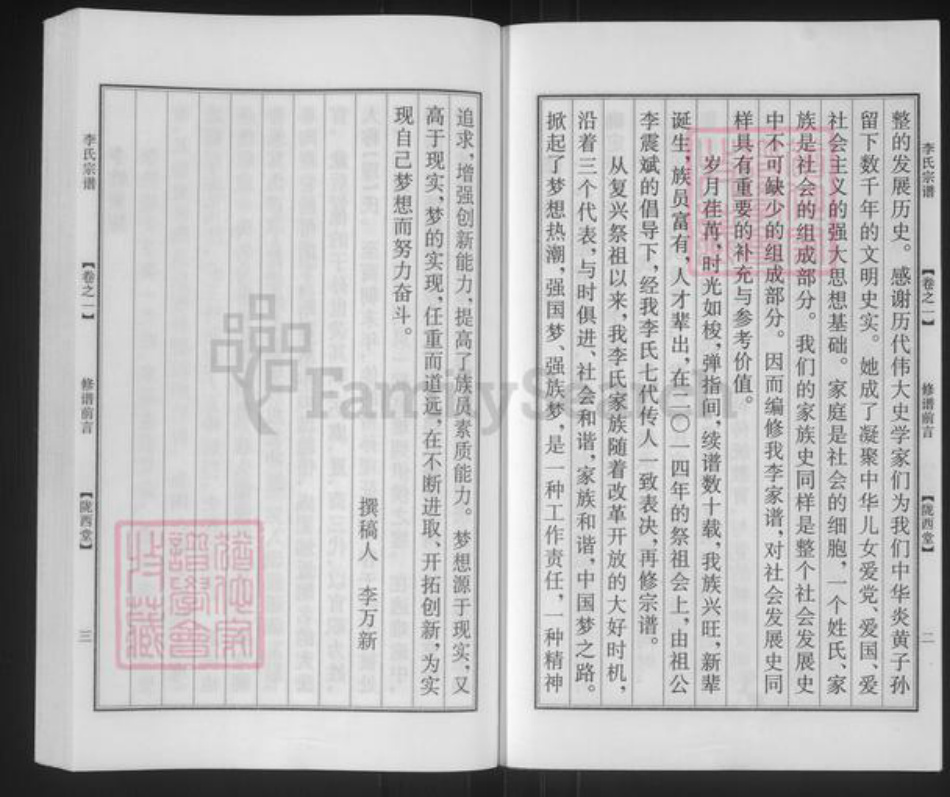 李氏宗谱
【卷之一】
修谱前言
【陇西堂】
二
整的发展历史。感谢历代伟大史学家们为我们中华炎黄子孙
留下数千年的文明史实。她成了凝聚中华儿女爱党、爱国、爱
社会主义的强大思想基础。家庭是社会的细胞，一个姓氏、家
族是社会的组成部分。我们的家族史同样是整个社会发展史
中不可缺少的组成部分。因而编修我李家谱，对社会发展史同
样具有重要的补充与参考价值。
岁月荏苒，时光如梭，弹指间，续谱数十载，我族兴旺，新辈
诞生，族员富有，人才辈出，在二〇一四年的祭祖会上，由祖公
李震斌的倡导下，经我李氏七代传人一致表决，再修宗谱。
从复兴祭祖以来，我李氏家族随着改革开放的大好时机，
沿着三个代表，与时俱进、社会和谐，家族和谐，中国梦之路。
掀起了梦想热潮，强国梦、强族梦，是一种工作责任，一种精神
追求，增强创新能力，提高了族员素质能力。梦想源于现实，又
高于现实，梦的实现，任重而道远，在不断进取、开拓创新，为实
现自己梦想而努力奋斗。
撰稿人 李万新
李氏宗谱
【卷之一】
修谱前言
【陇西堂】
三
FamilySearch